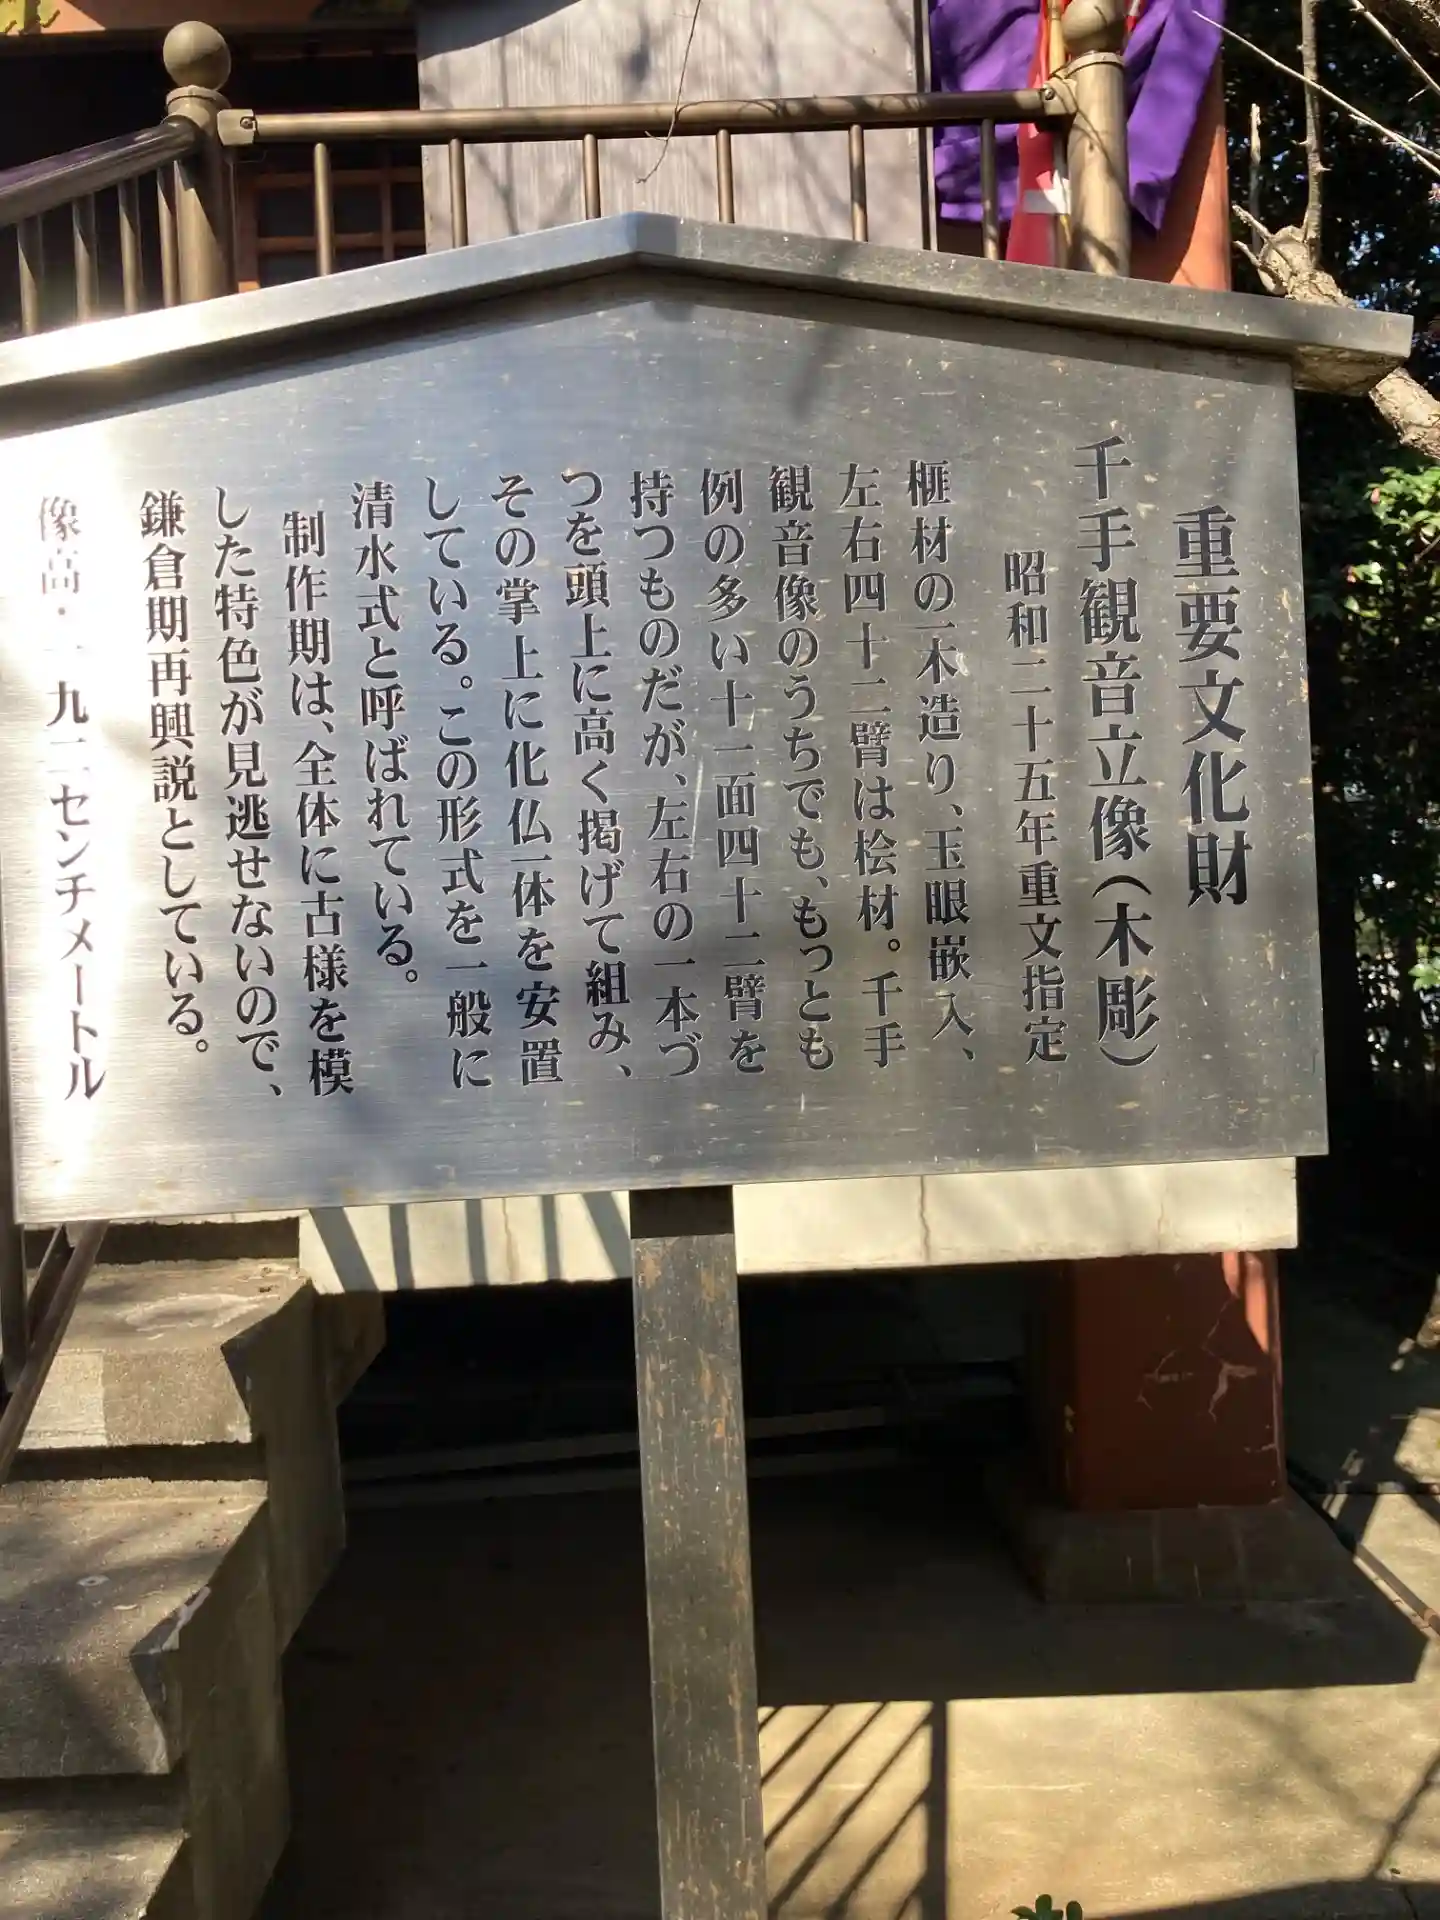 重要文化財
千手観音立像（木彫）
昭和二十五年重文指定
榧材の一木造り、玉眼嵌入、
左右四十二臂は桧材。千手
観音像のうちでも、もっとも
例の多い十一面四十二臂を
持つものだが、左右の一本づ
つを頭上に高く掲げて組み、
その掌上に化仏一体を安置
している。この形式を一般に
清水式と呼ばれている。
制作期は、全体に古様を模
した特色が見逃せないので、
鎌倉期再興説としている。
像高・一九二センチメートル